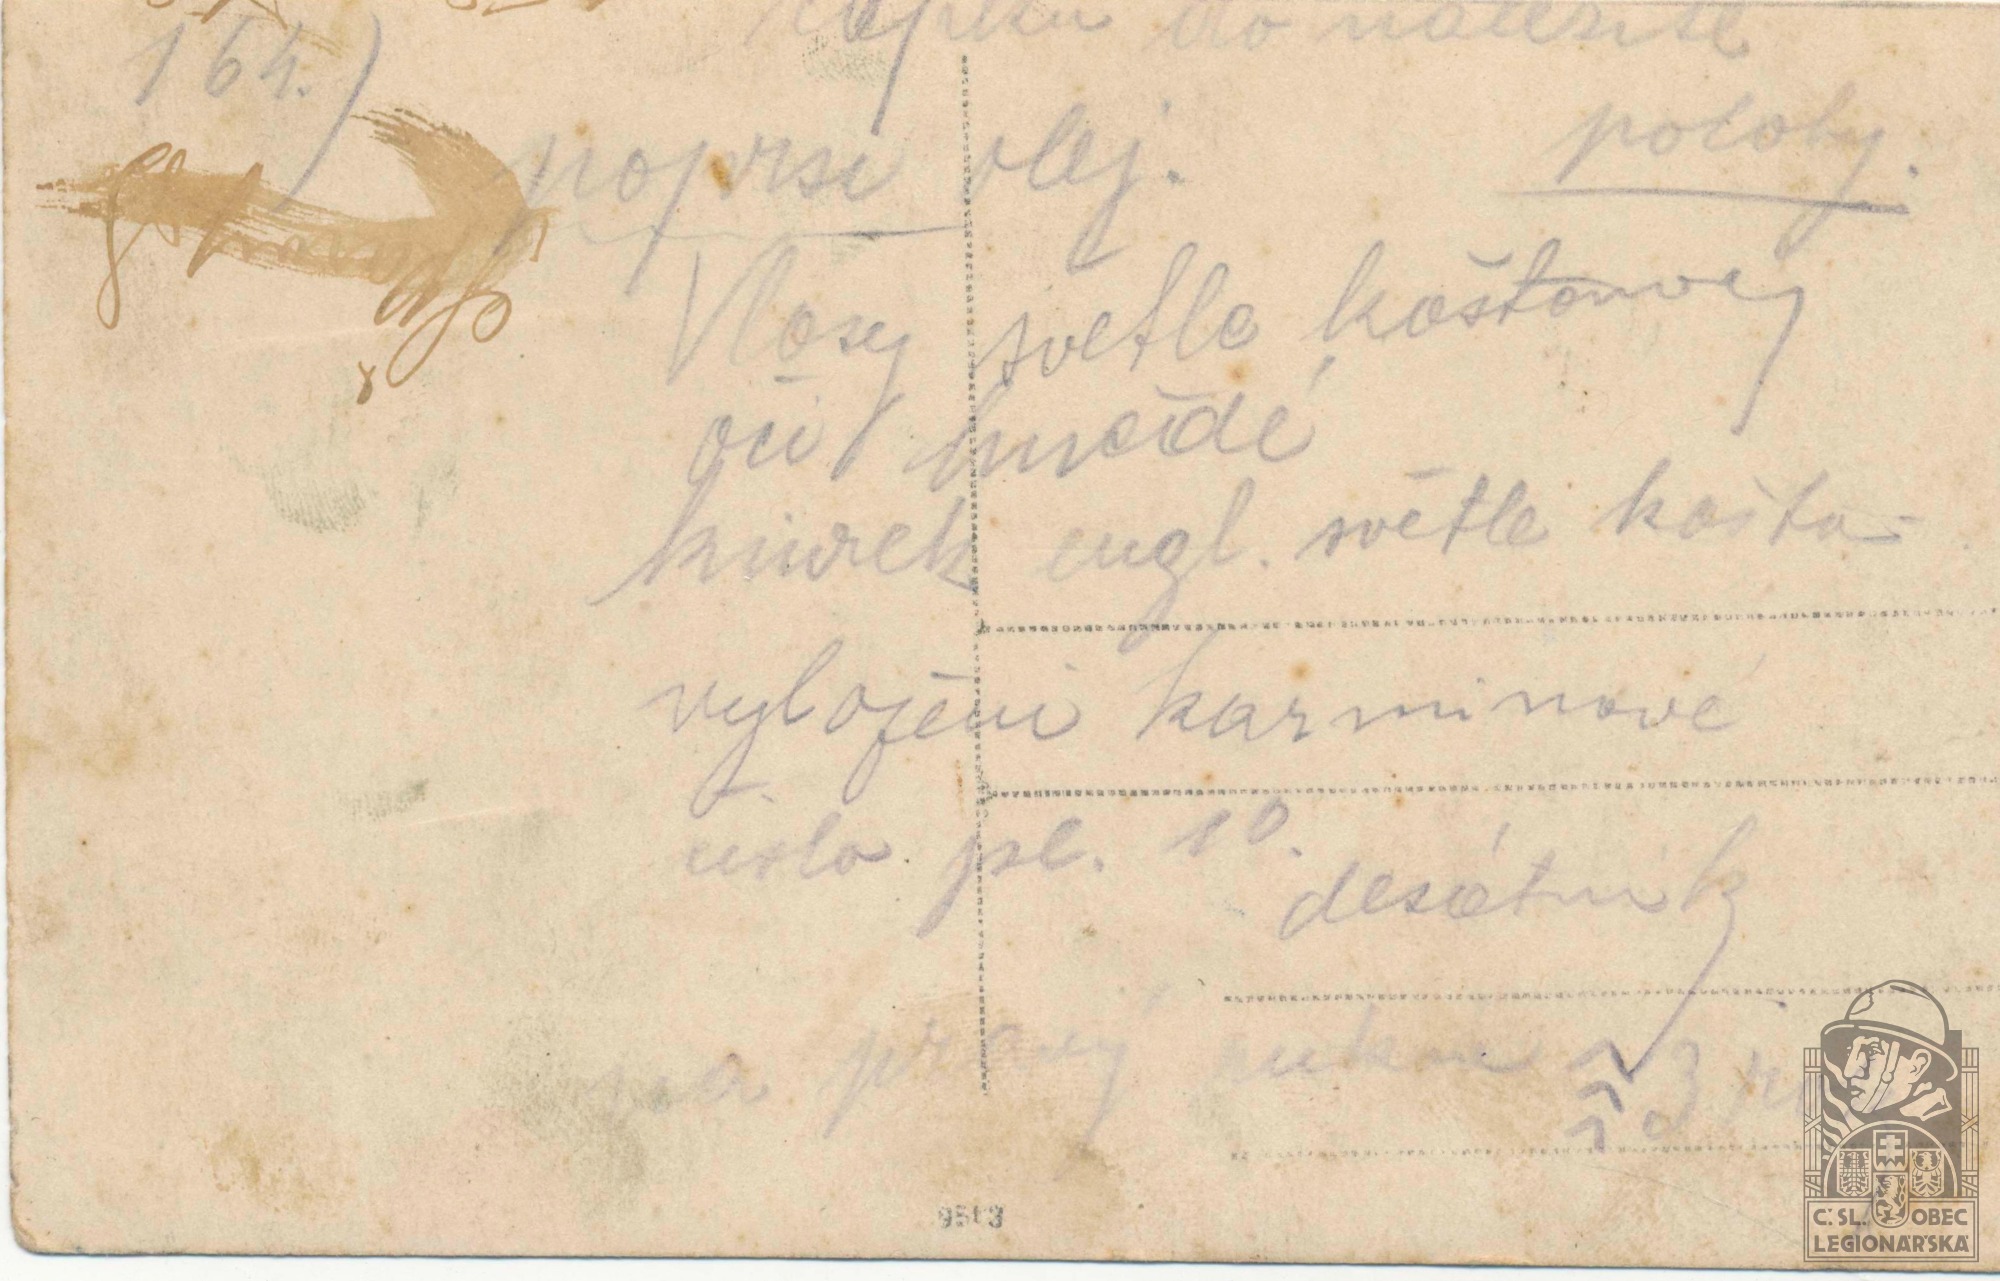 čapku do náležité
164.)
podoby.
poprsí olej.
Vlasy světle kaštanové
oči hnědé
knírek engl. světle kašta-
vyložení karminové
číslo pl. 10.
desátník
na pravý rukáv
9513
Č.SL. OBEC
LEGIONÁŘSKÁ